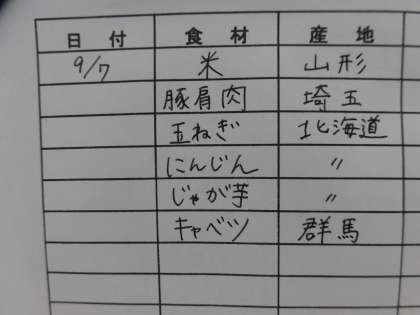 日付 食材 産地
9/7 米 山形
豚肩肉 埼玉
玉ねぎ 北海道
にんじん 〃
じゃが芋 〃
キャベツ 群馬